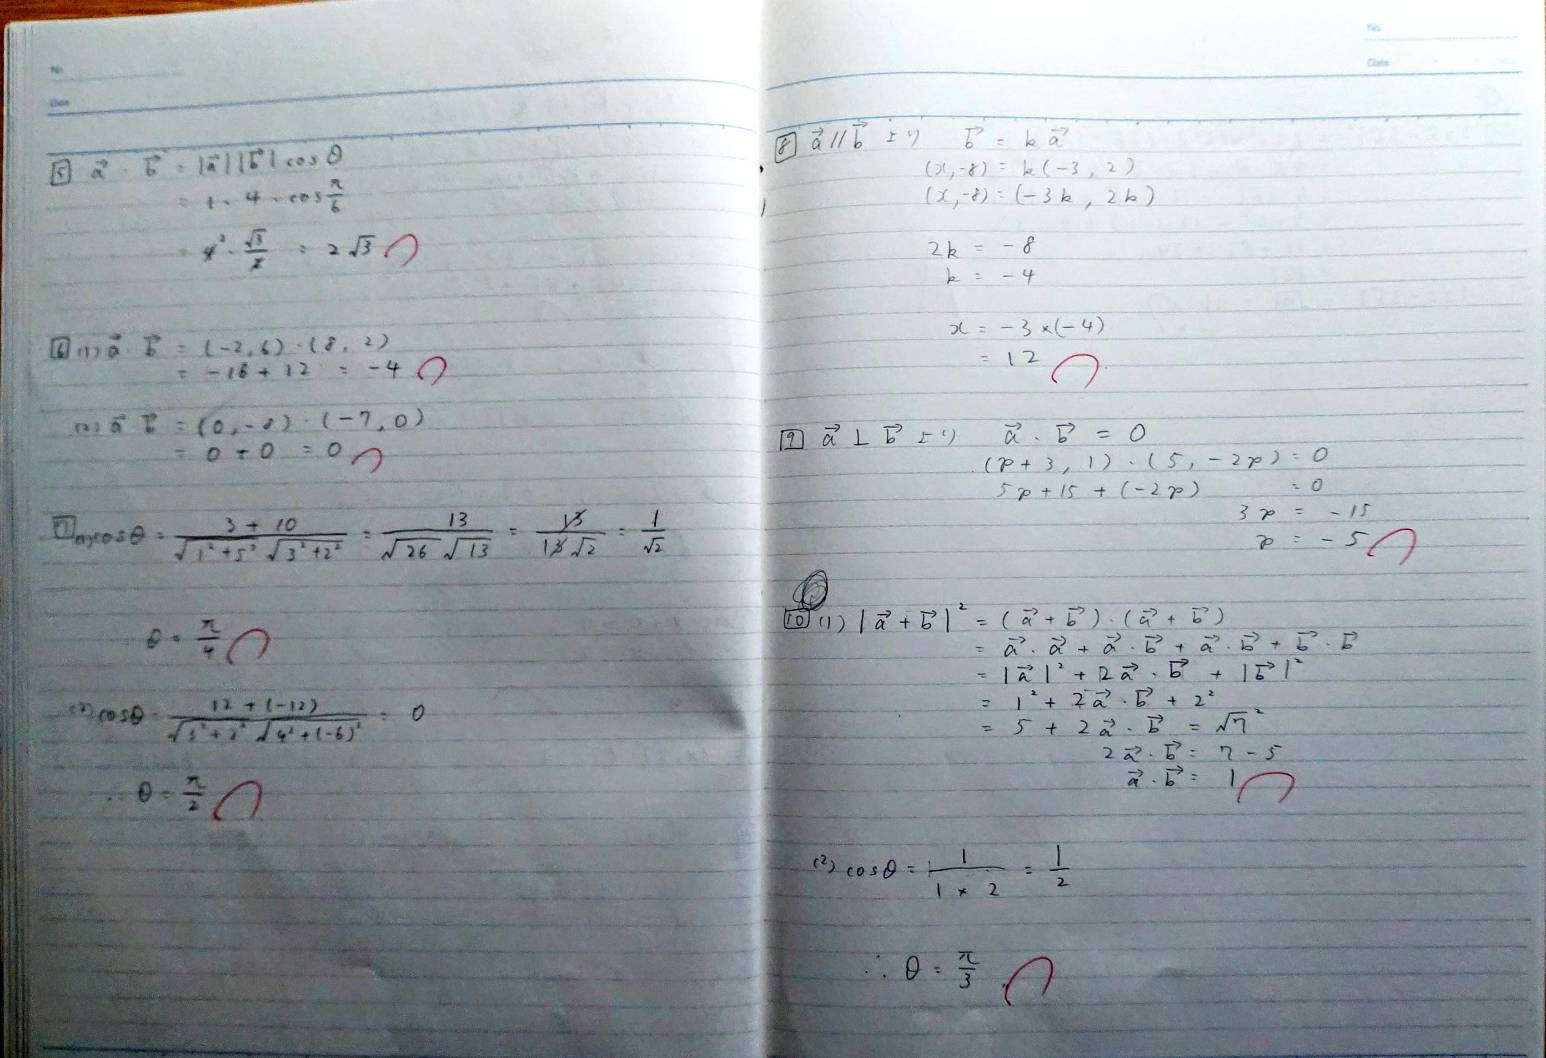 No.
Date
[5] a⃗ · b⃗ = |a⃗||b⃗| cos θ
= 1 · 4 · cos π/6
= 4² · √3/2 = 2√3
[6] (1) a⃗ · b⃗ = (-2, 6) · (8, 2)
= -16 + 12 = -4
(2) a⃗ b⃗ = (0, -8) · (-7, 0)
= 0 + 0 = 0
[7] (1) cosθ = (3 + 10)/(√(1²+5²) √(3²+2²)) = 13/(√26 √13) = 13/(13√2) = 1/√2
∴ θ = π/4
(2) cosθ = (12 + (-12))/(√(3²+2²) √(4²+(-6)²)) = 0
∴ θ = π/2
No.
Date
[8] a⃗ // b⃗ より b⃗ = k a⃗
(x, -8) = k(-3, 2)
(x, -8) = (-3k, 2k)
2k = -8
k = -4
x = -3 × (-4)
= 12
[9] a⃗ ⊥ b⃗ より a⃗ · b⃗ = 0
(p + 3, 1) · (5, -2p) = 0
5p + 15 + (-2p) = 0
3p = -15
p = -5
[10] (1) |a⃗ + b⃗|² = (a⃗ + b⃗) · (a⃗ + b⃗)
= a⃗ · a⃗ + a⃗ · b⃗ + a⃗ · b⃗ + b⃗ · b⃗
= |a⃗|² + 2a⃗ · b⃗ + |b⃗|²
= 1² + 2a⃗ · b⃗ + 2²
= 5 + 2a⃗ · b⃗ = √7²
2a⃗ · b⃗ = 7 - 5
a⃗ · b⃗ = 1
(2) cosθ = 1/(1 × 2) = 1/2
∴ θ = π/3